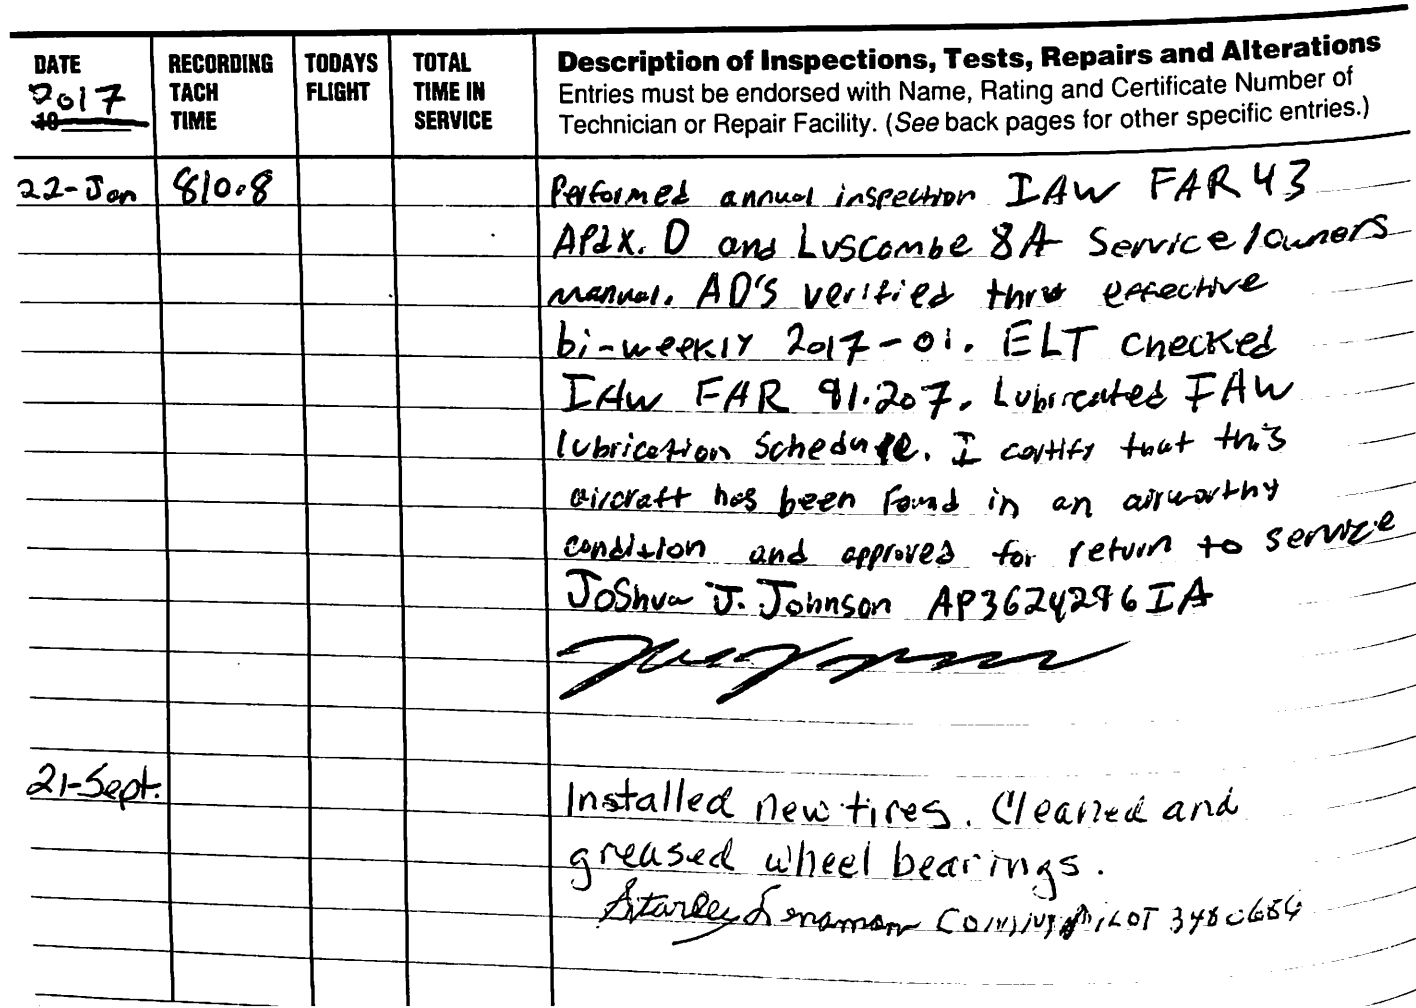 DATE
2017
19
RECORDING
TACH
TIME
TODAYS
FLIGHT
TOTAL
TIME IN
SERVICE
Description of Inspections, Tests, Repairs and Alterations
Entries must be endorsed with Name, Rating and Certificate Number of
Technician or Repair Facility. (See back pages for other specific entries.)
22-Jan 810.8 Performed annual inspection IAW FAR 43
APdX. D and Luscombe 8A Service/owners
manual. AD'S verified thru effective
bi-weekly 2017-01. ELT checked
IAW FAR 91.207. Lubricated IAW
lubrication schedule. I certify that this
aircraft has been found in an airworthy
condition and approved for return to service
Joshua J. Johnson AP3624296IA
21-Sept. Installed new tires. Cleaned and
greased wheel bearings.
Stanley PILOT